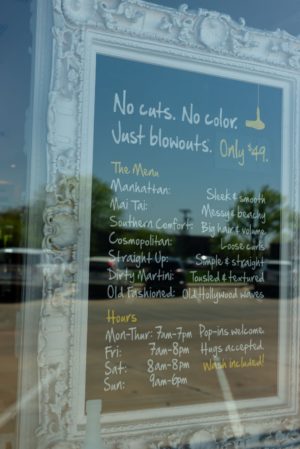 No cuts. No color.
Just blowouts. Only $49.
The Menu
Manhattan: Sleek & smooth
Mai Tai: Messy & beachy
Southern Comfort: Big hair + volume
Cosmopolitan: Loose curls
Straight Up: Simple & straight
Dirty Martini: Tousled & textured
Old Fashioned: Old Hollywood waves
Hours
Mon-Thur: 7am-7pm Pop-ins welcome.
Fri: 7am-8pm Hugs accepted.
Sat: 8am-8pm Wash included!
Sun: 9am-6pm